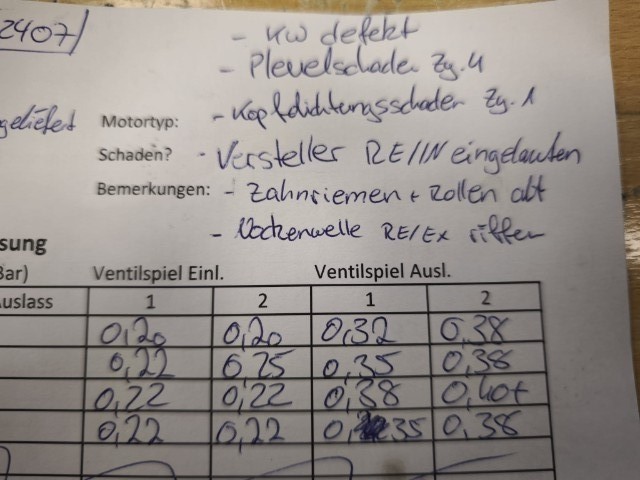 2407
- KW defekt
- Pleuelschaden Zy. 4
geliefert Motortyp: - Kopfdichtungsschaden Zy. 1
Schaden? - Versteller RE/IN eingelaufen
Bemerkungen: - Zahnriemen + Rollen alt
- Nockenwelle RE/EX riffen
sung
Bar) Ventilspiel Einl. Ventilspiel Ausl.
uslass 1 2 1 2
0,20 0,20 0,32 0,38
0,22 0,25 0,35 0,38
0,22 0,22 0,38 0,40+
0,22 0,22 0,35 0,38